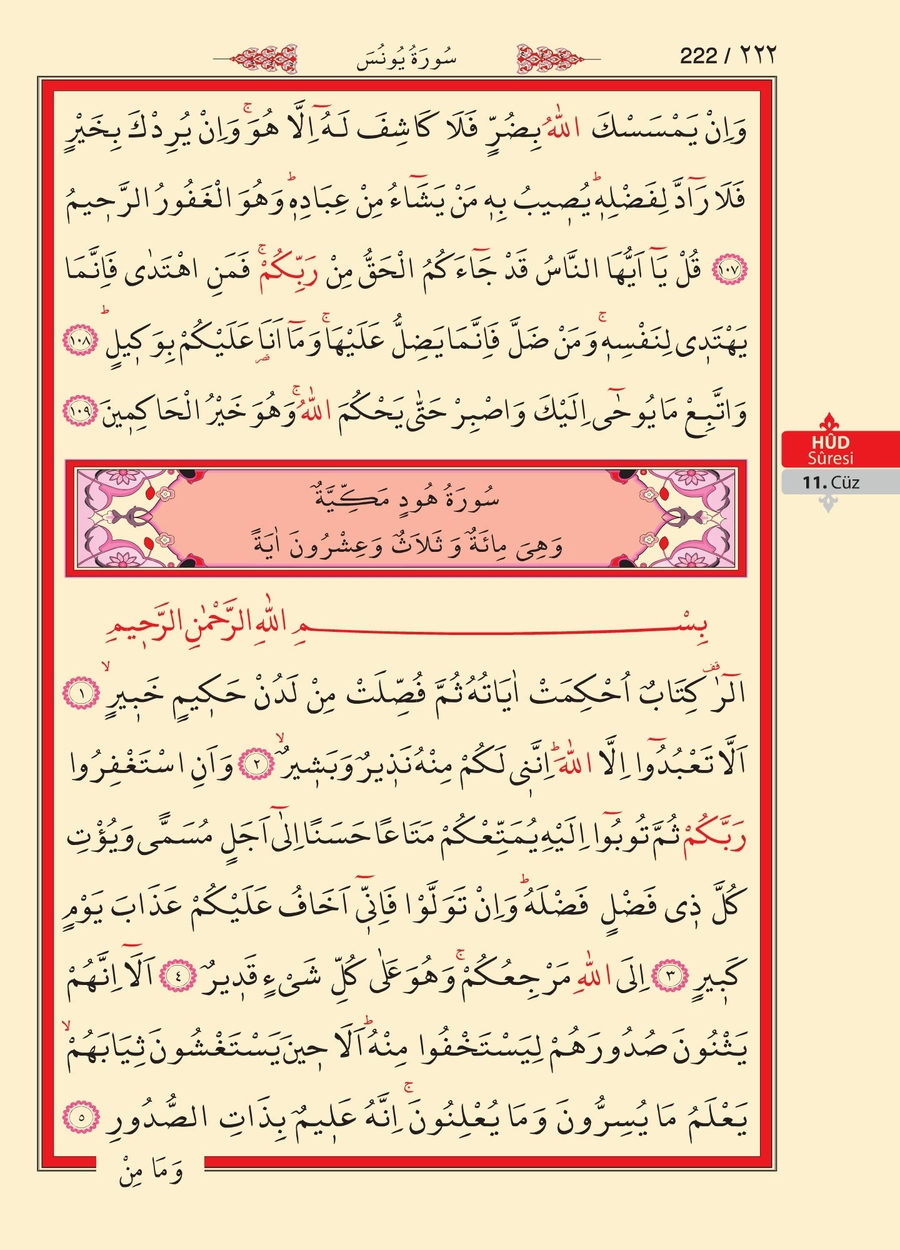 سُورَةُ يُونُسَ
222 / ٢٢٢
وَاِنْ يَمْسَسْكَ اللّٰهُ بِضُرٍّ فَلَا كَاشِفَ لَـهُٓ اِلَّا هُوَۚ وَاِنْ يُرِدْكَ بِخَيْرٍ
فَلَا رَٓادَّ لِفَضْلِهٖۜ يُصٖيبُ بِهٖ مَنْ يَشَٓاءُ مِنْ عِبَادِهٖۜ وَهُوَ الْغَفُورُ الرَّحٖيمُ
﴿١٠٧﴾ قُلْ يَٓا اَيُّهَا النَّاسُ قَدْ جَٓاءَكُمُ الْحَقُّ مِنْ رَبِّكُمْۚ فَمَنِ اهْتَدٰى فَاِنَّمَا
يَهْتَدٖى لِنَفْسِهٖۚ وَمَنْ ضَلَّ فَاِنَّمَا يَضِلُّ عَلَيْهَاۚ وَمَٓا اَنَا۬ عَلَيْكُمْ بِوَكٖيلٍۜ ﴿١٠٨﴾
وَاتَّبِعْ مَا يُوحٰٓى اِلَيْكَ وَاصْبِرْ حَتّٰى يَحْكُمَ اللّٰهُۚ وَهُوَ خَيْرُ الْحَاكِمٖينَ ﴿١٠٩﴾
HÛD
Sûresi
11. Cüz
سُورَةُ هُودٍ مَكِّيَّةٌ
وَهِىَ مِائَةٌ وَ ثَلَاثٌ وَعِشْرُونَ اٰيَةً
بِسْمِ اللّٰهِ الرَّحْمٰنِ الرَّحٖيمِ
الٓرٰ۠ كِتَابٌ اُحْكِمَتْ اٰيَاتُهُ ثُمَّ فُصِّلَتْ مِنْ لَدُنْ حَكٖيمٍ خَبٖيرٍۙ ﴿١﴾
اَلَّا تَعْبُدُٓوا اِلَّا اللّٰهَۜ اِنَّنٖى لَكُمْ مِنْهُ نَذٖيرٌ وَبَشٖيرٌۙ ﴿٢﴾ وَاَنِ اسْتَغْفِرُوا
رَبَّكُمْ ثُمَّ تُوبُٓوا اِلَيْهِ يُمَتِّعْكُمْ مَتَاعًا حَسَنًا اِلٰٓى اَجَلٍ مُسَمًّى وَيُؤْتِ
كُلَّ ذٖى فَضْلٍ فَضْلَهُۜ وَاِنْ تَوَلَّوْا فَاِنّٖٓى اَخَافُ عَلَيْكُمْ عَذَابَ يَوْمٍ
كَبٖيرٍ ﴿٣﴾ اِلَى اللّٰهِ مَرْجِعُكُمْۚ وَهُوَ عَلٰى كُلِّ شَىْءٍ قَدٖيرٌ ﴿٤﴾ اَلَٓا اِنَّهُمْ
يَثْنُونَ صُدُورَهُمْ لِيَسْتَخْفُوا مِنْهُۜ اَلَا حٖينَ يَسْتَغْشُونَ ثِيَابَهُمْۙ
يَعْلَمُ مَا يُسِرُّونَ وَمَا يُعْلِنُونَۚ اِنَّهُ عَلٖيمٌ بِذَاتِ الصُّدُورِ ﴿٥﴾
وَمَا مِنْ